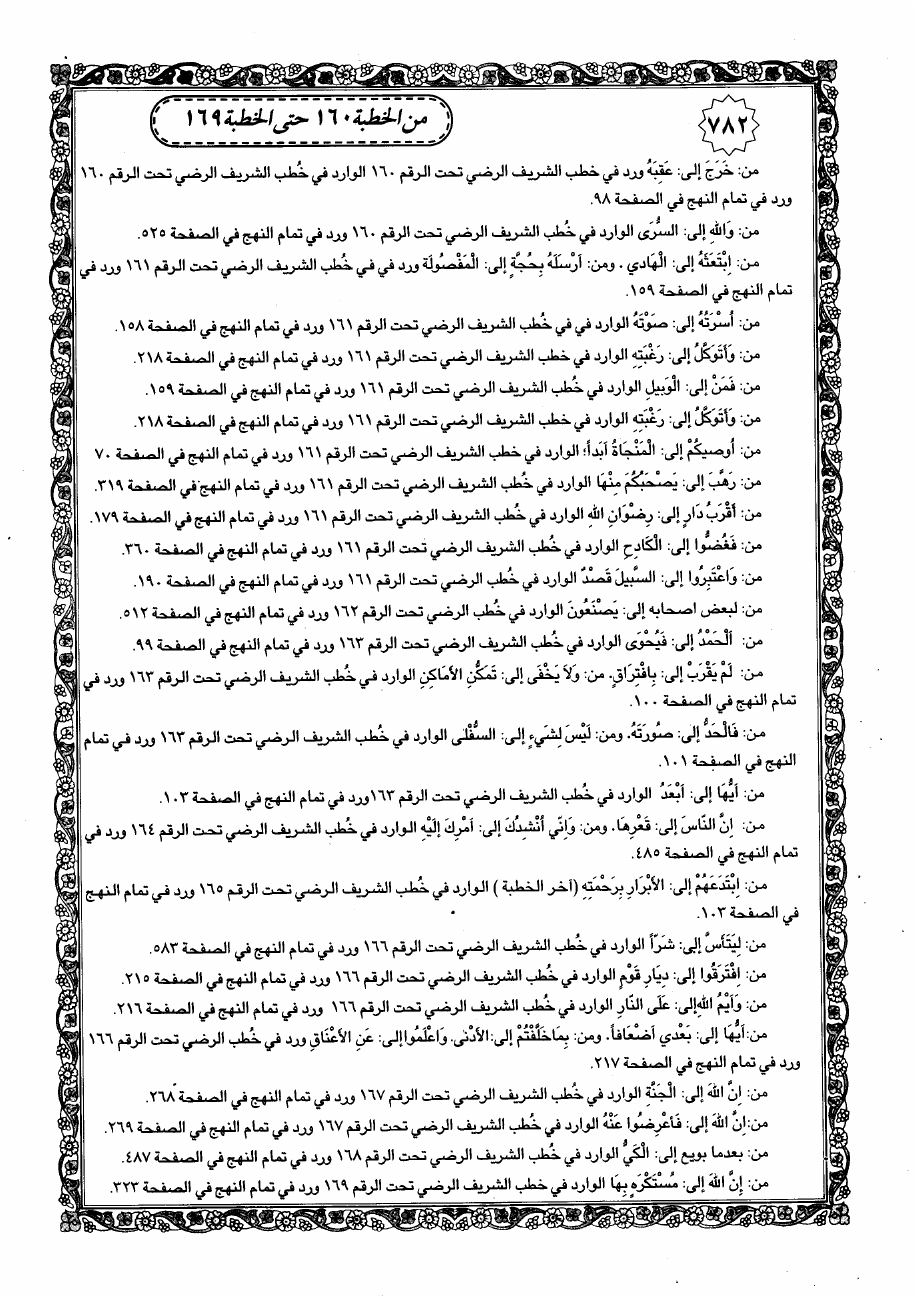 ٧٨٢
من الخطبة ١٦٠ حتى الخطبة ١٦٩
من: خَرَجَ إلى: عَقِبَهُ ورد في خطب الشريف الرضي تحت الرقم ١٦٠ الوارد في خُطب الشريف الرضي تحت الرقم ١٦٠
ورد في تمام النهج في الصفحة ٩٨.
من: وَاللهِ إلى: السُّرَى الوارد في خُطب الشريف الرضي تحت الرقم ١٦٠ ورد في تمام النهج في الصفحة ٥٢٥.
من: اِبْتَعَثَهُ إلى: الْهَادي . ومن: اَرْسَلَهُ بِحُجَّةٍ إلى: الْمَفْصُولَة ورد في في خُطب الشريف الرضي تحت الرقم ١٦١ ورد في
تمام النهج في الصفحة ١٥٩.
من: أُسْرَتُهُ إلى: صَوْتَهُ الوارد في في خُطب الشريف الرضي تحت الرقم ١٦١ ورد في تمام النهج في الصفحة ١٥٨.
من: وَأَتَوَكَّلُ إلى: رَغْبَتِهِ الوارد في خطب الشريف الرضي تحت الرقم ١٦١ ورد في تمام النهج في الصفحة ٢١٨.
من: فَمَنْ إلى: الْوَبيلِ الوارد في خطب الشريف الرضي تحت الرقم ١٦١ ورد في تمام النهج في الصفحة ١٥٩.
من: وَأَتَوَكَّلُ إلى: رَغْبَتِهِ الوارد في خطب الشريف الرضي تحت الرقم ١٦١ ورد في تمام النهج في الصفحة ٢١٨.
من: أُوصيكُمْ إلى: الْمَنْجَاةُ اَبَداً؛ الوارد في خطب الشريف الرضي تحت الرقم ١٦١ ورد في تمام النهج في الصفحة ٧٠
من: رَهَّبَ إلى: يَصْحَبُكُمْ مِنْهَا الوارد في خُطب الشريف الرضي تحت الرقم ١٦١ ورد في تمام النهج في الصفحة ٣١٩.
من: أَقْرَبُ دَارٍ إلى: رِضْوَانِ اللهِ الوارد في خُطب الشريف الرضي تحت الرقم ١٦١ ورد في تمام النهج في الصفحة ١٧٩.
من: فَغُضُّوا إلى: الْكَادِحِ الوارد في خُطب الشريف الرضي تحت الرقم ١٦١ ورد في تمام النهج في الصفحة ٣٦٠.
من: وَاعْتَبِرُوا إلى: السَّبيلَ قَصْدٌ الوارد في خُطب الشريف الرضي تحت الرقم ١٦١ ورد في تمام النهج في الصفحة ١٩٠.
من: لبعض اصحابه إلى: يَصْنَعُونَ الوارد في خُطب الشريف الرضي تحت الرقم ١٦٢ ورد في تمام النهج في الصفحة ٥١٢.
من: اَلْحَمْدُ إلى: فَيُحْوَى الوارد في خُطب الشريف الرضي تحت الرقم ١٦٣ ورد في تمام النهج في الصفحة ٩٩.
من: لَمْ يَقْرَبْ إلى: بِافْتِرَاقٍ. من: وَلاَ يَخْفَى إلى: تَمَكُّنِ الأَمَاكِنِ الوارد في خُطب الشريف الرضي تحت الرقم ١٦٣ ورد في
تمام النهج في الصفحة ١٠٠.
من: فَالْحَدُّ إلى: صُورَتَهُ. ومن: لَيْسَ لِشَيْءٍ إلى: السُّفْلى الوارد في خُطب الشريف الرضي تحت الرقم ١٦٣ ورد في تمام
النهج في الصفحة ١٠١.
من: أَيُّهَا إلى: أَبْعَدُ الوارد في خُطب الشريف الرضي تحت الرقم ١٦٣ورد في تمام النهج في الصفحة ١٠٣.
من: اِنَّ النَّاسَ إلى: قَعْرِهَا. ومن: وَاِنّي أُنْشِدُكَ إلى: اَمْرِكَ اِلَيْهِ الوارد في خُطب الشريف الرضي تحت الرقم ١٦٤ ورد في
تمام النهج في الصفحة ٤٨٥.
من: اِبْتَدَعَهُمْ إلى: الأَبْرَارِ بِرَحْمَتِهِ (آخر الخطبة ) الوارد في خُطب الشريف الرضي تحت الرقم ١٦٥ ورد في تمام النهج
في الصفحة ١٠٣.
من: لِيَتَأَسَّ إلى: شَرّاً الوارد في خُطب الشريف الرضي تحت الرقم ١٦٦ ورد في تمام النهج في الصفحة ٥٨٣.
من: اِفْتَرَقُوا إلى: دِيَارِ قَوْمٍ الوارد في خُطب الشريف الرضي تحت الرقم ١٦٦ ورد في تمام النهج في الصفحة ٢١٥.
من: وَاَيْمُ اللهِإلى: عَلَى النَّارِ الوارد في خُطب الشريف الرضي تحت الرقم ١٦٦ ورد في تمام النهج في الصفحة ٢١٦.
من:اَيُّهَا إلى: بَعْدي اَضْعَافاً. ومن: بِمَاخَلَّفْتُمْ إلى:الأَدْنى. وَاعْلَمُواإلى: عَنِ الأَعْنَاقِ ورد في خُطب الرضي تحت الرقم ١٦٦
ورد في تمام النهج في الصفحة ٢١٧.
من: اِنَّ اللهَ إلى: الْجَنَّةِ الوارد في خُطب الشريف الرضي تحت الرقم ١٦٧ ورد في تمام النهج في الصفحة ٢٦٨.
من:اِنَّ اللهَ إلى: فَاَعْرِضُوا عَنْهُ الوارد في خُطب الشريف الرضي تحت الرقم ١٦٧ ورد في تمام النهج في الصفحة ٢٦٩.
من: بعدما بويع إلى: الْكَيُّ الوارد في خُطب الشريف الرضي تحت الرقم ١٦٨ ورد في تمام النهج في الصفحة ٤٨٧.
من: إِنَّ اللهَ إلى: مُسْتَكْرَهٍ بِهَا الوارد في خُطب الشريف الرضي تحت الرقم ١٦٩ ورد في تمام النهج في الصفحة ٣٢٣.